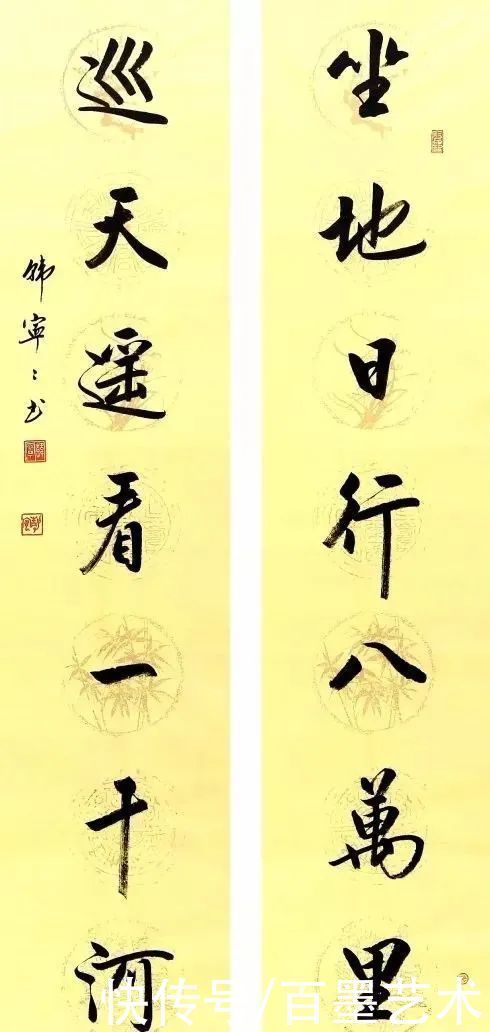 坐地日行八萬里
巡天遥看一千河
韩寧〻书
快传号/百墨艺术